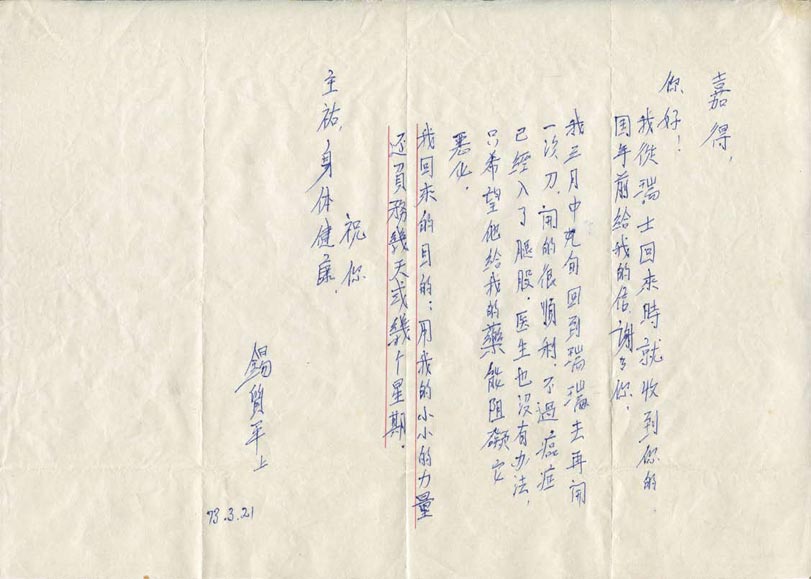 嘉得,
你好!
我從瑞士回來時就收到你的,
国年前給我的信,謝了你.
我三月中旬回到瑞瑞去再開
一次刀,開的很順利,不過癌症
已經入了腿股.医生也沒有办法,
只希望他給我的藥能阻礙它
惡化.
我回來的目的:用我的小小的力量
还員務幾天或幾个星期.
祝你
主祐,身体健康.
錫質平上
73.3.21